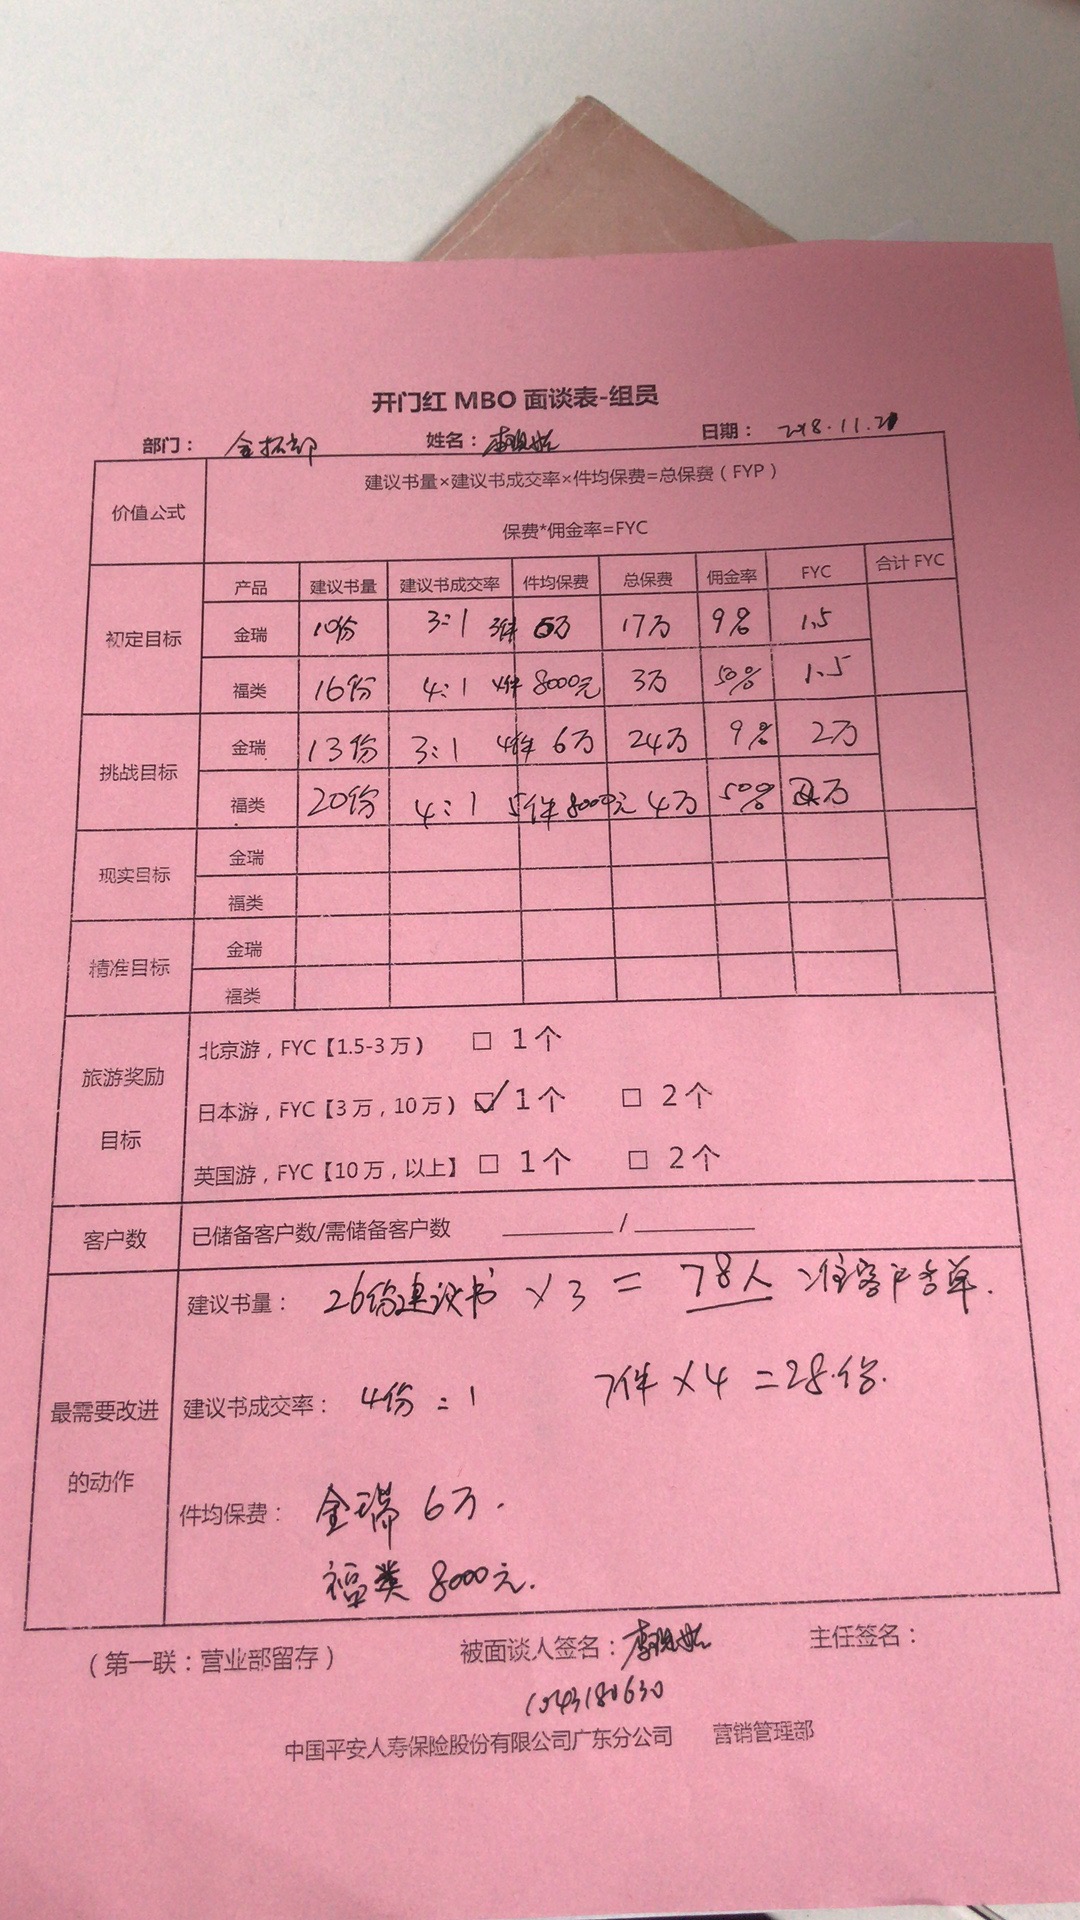 开门红 MBO 面谈表-组员
部门： 金拓部 姓名： 日期： 2018.11.21
价值公式 建议书量×建议书成交率×件均保费=总保费（FYP）
保费*佣金率=FYC
产品 建议书量 建议书成交率 件均保费 总保费 佣金率 FYC 合计 FYC
初定目标 金瑞 10份 3:1 3件 6万 17万 9% 1.5
福类 16份 4:1 4件 8000元 3万 50% 1.5
挑战目标 金瑞 13份 3:1 4件 6万 24万 9% 2万
福类 20份 4:1 5件 8000元 4万 50% 万
现实目标 金瑞
福类
精准目标 金瑞
福类
旅游奖励目标
北京游，FYC【1.5-3 万） □ 1个
日本游，FYC【3 万，10 万） ☑ 1个 □ 2个
英国游，FYC【10 万，以上】 □ 1个 □ 2个
客户数 已储备客户数/需储备客户数 ______/______
最需要改进的动作
建议书量： 26份建议书 × 3 = 78人 准客户名单.
建议书成交率： 4份：1 7件×4=28份.
件均保费： 金瑞 6万.
福类 8000元.
（第一联：营业部留存） 被面谈人签名： 主任签名：
1043180630
中国平安人寿保险股份有限公司广东分公司 营销管理部